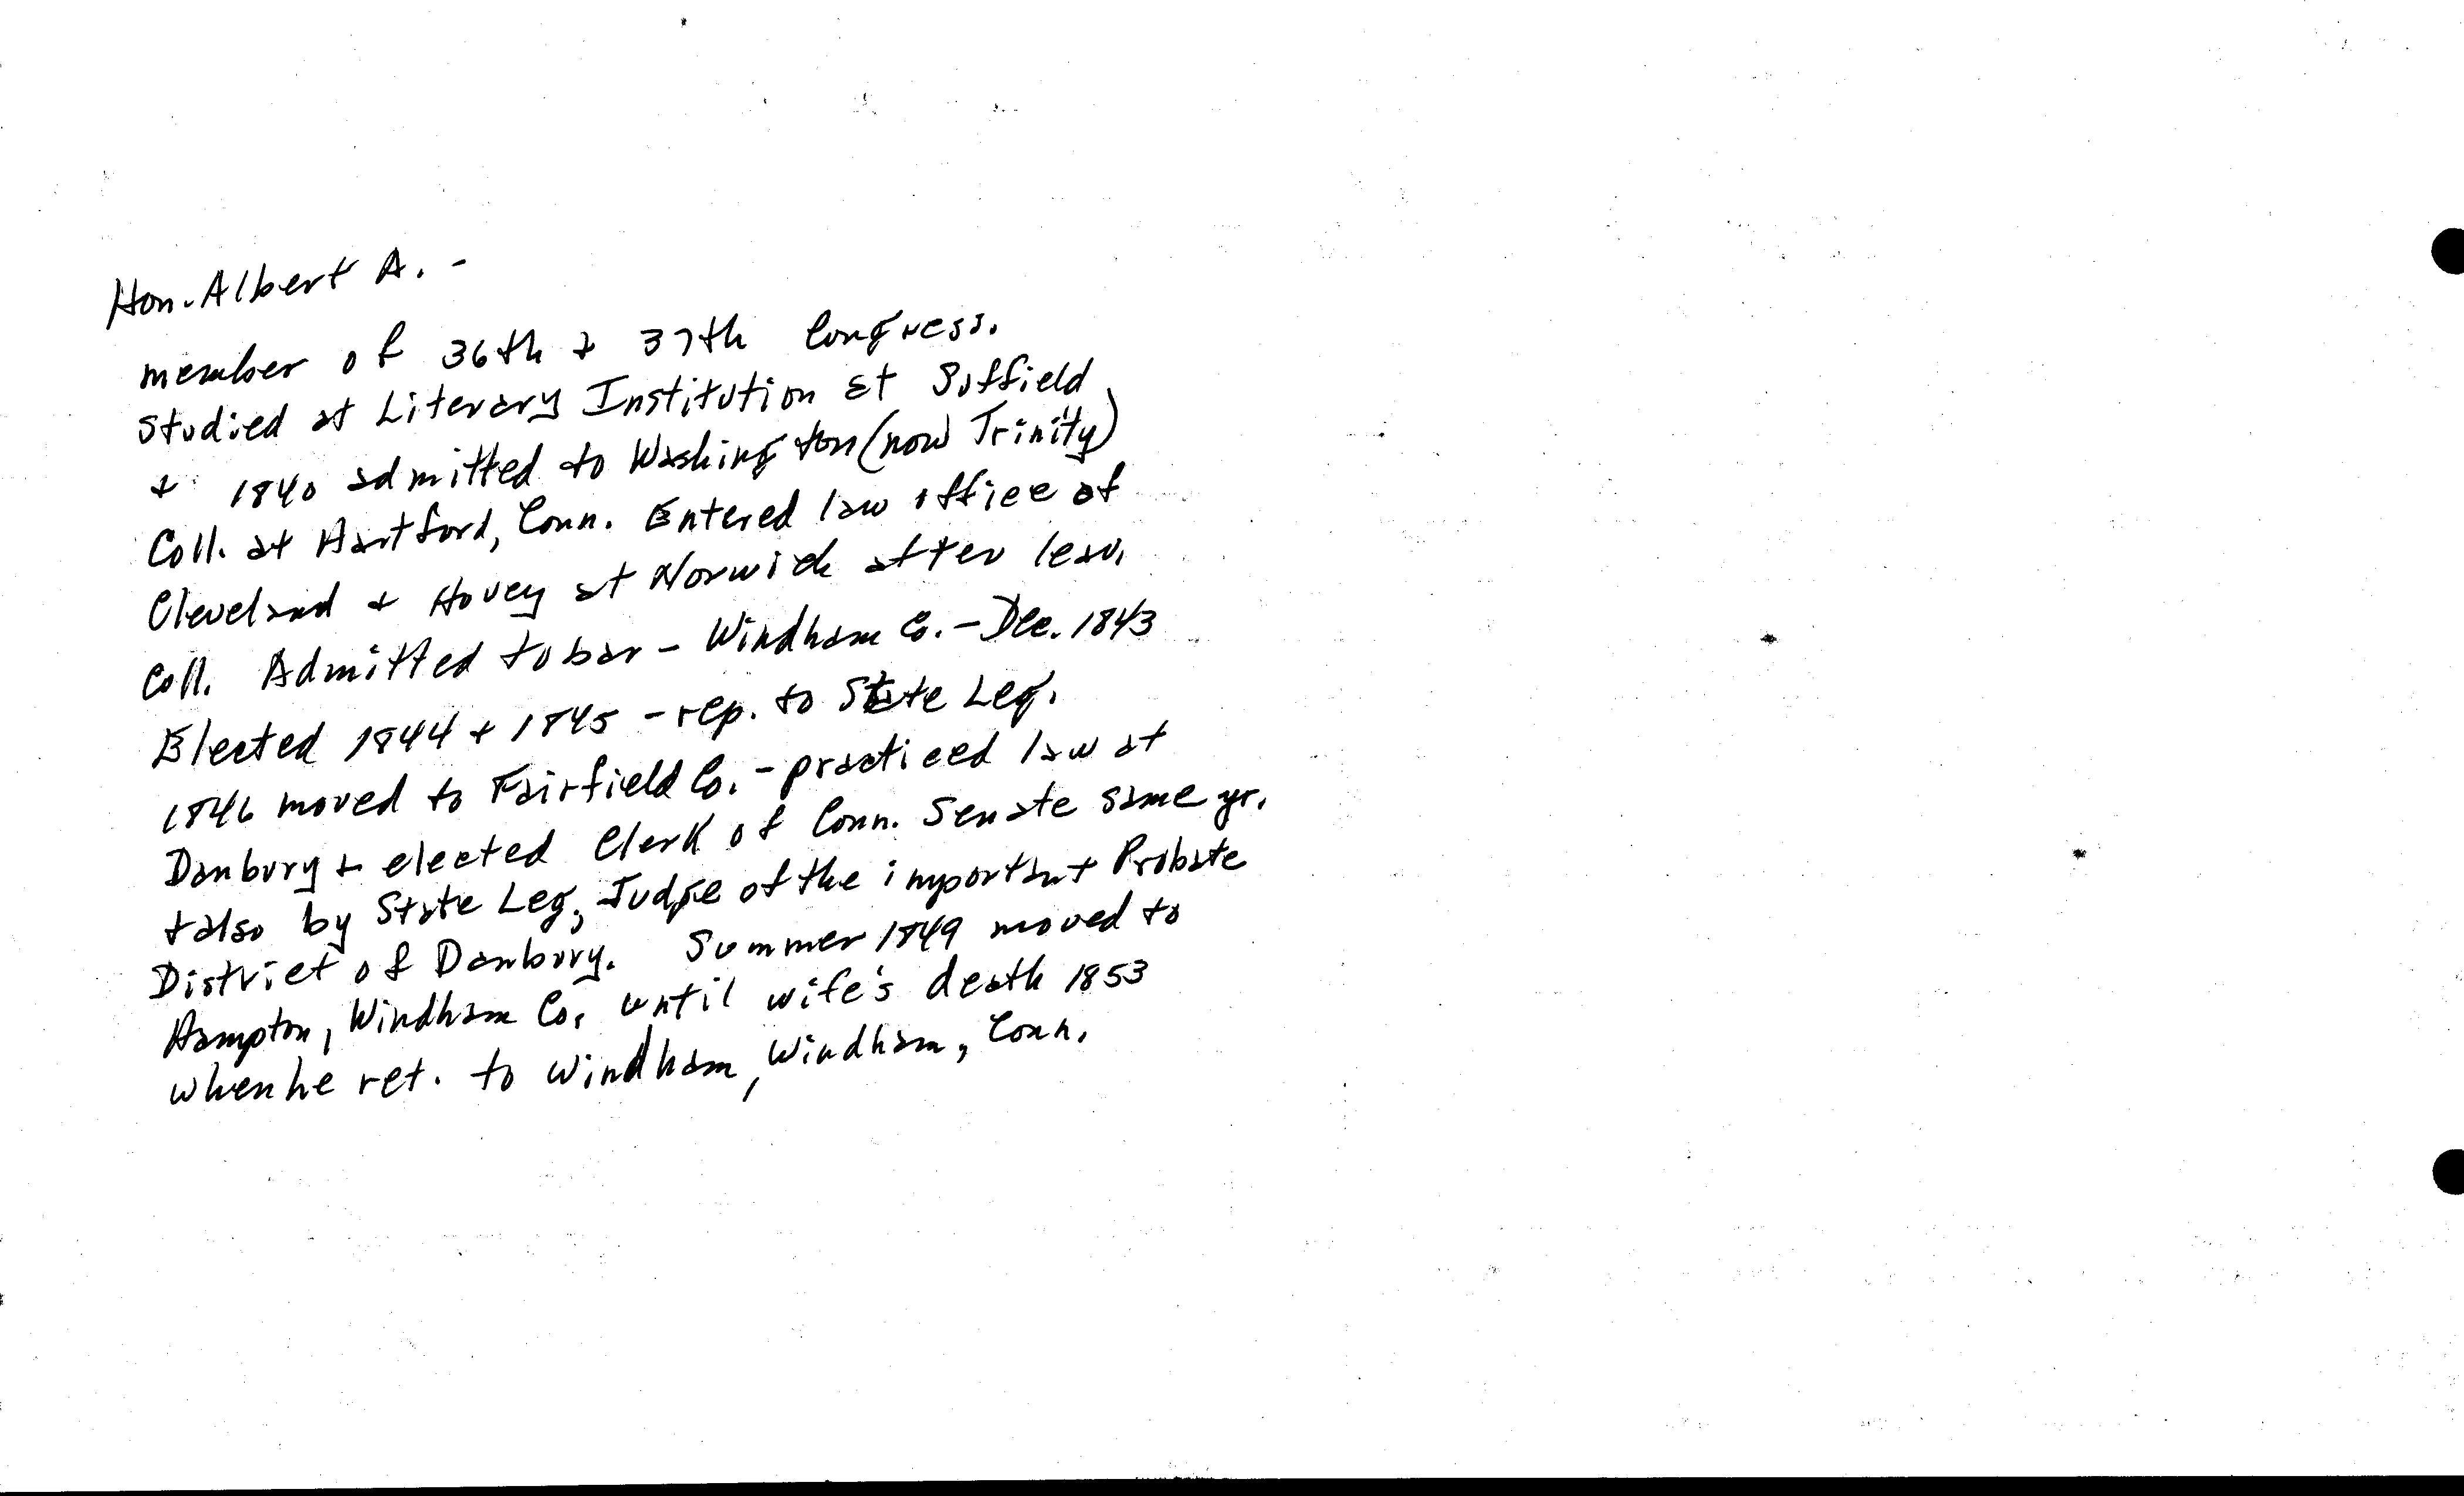 Hon. Albert A. -
member of 36th + 37th Congress.
studied at Literary Institution at Suffield
+ 1840 admitted to Washington (now Trinity)
Coll. at Hartford, Conn. Entered law office of
Cleveland + Hovey at Norwich after leav.
Coll. Admitted to bar - Windham Co. - Dec. 1843
Elected 1844 + 1845 - rep. to State Leg.
1846 moved to Fairfield Co. - practiced law at
Danbury + elected Clerk of Conn. Senate same yr.
+ also by State Leg, Judge of the important Probate
District of Danbury. Summer 1849 moved to
Hampton, Windham Co. until wife's death 1853
when he ret. to Windham, Windham, Conn.